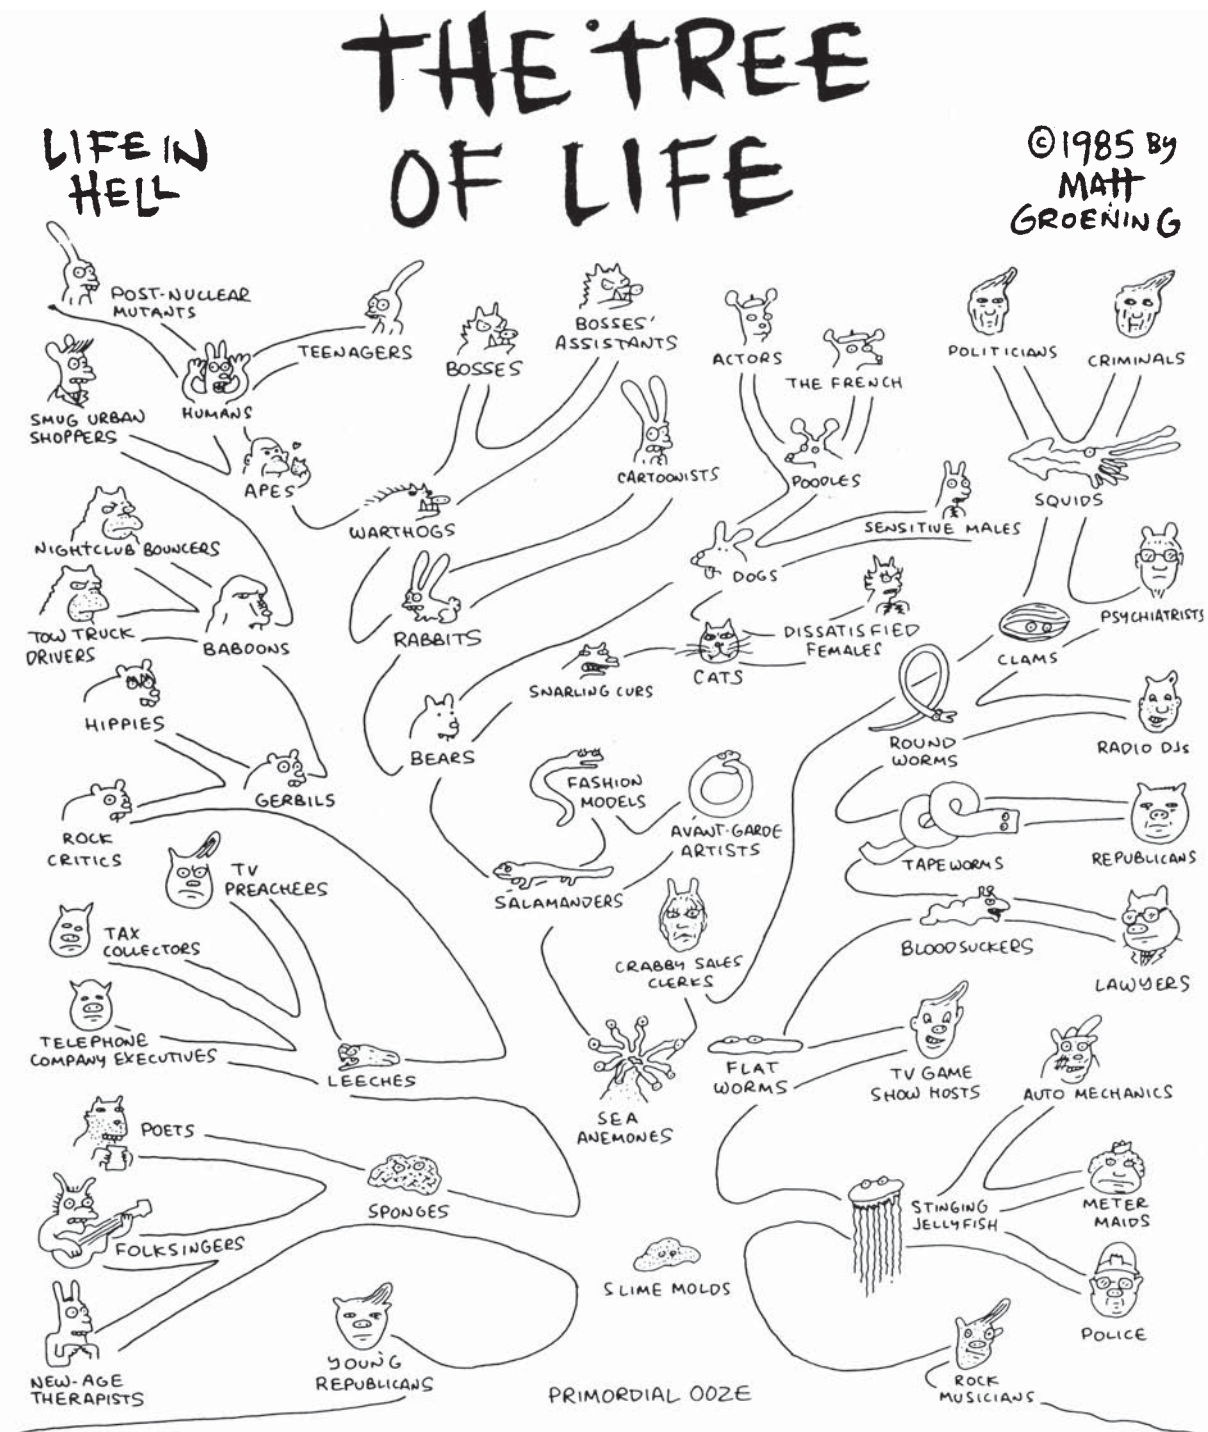 THE TREE
OF LIFE
LIFE IN
HELL
©1985 BY
MATT
GROENING
POST-NUCLEAR
MUTANTS
TEENAGERS
BOSSES
BOSSES'
ASSISTANTS
ACTORS
THE FRENCH
POLITICIANS
CRIMINALS
SMUG URBAN
SHOPPERS
HUMANS
APES
WARTHOGS
CARTOONISTS
POODLES
SENSITIVE MALES
SQUIDS
NIGHTCLUB BOUNCERS
TOW TRUCK
DRIVERS
BABOONS
RABBITS
DOGS
DISSATISFIED
FEMALES
PSYCHIATRISTS
CLAMS
HIPPIES
SNARLING CURS
CATS
BEARS
ROUND
WORMS
RADIO DJs
GERBILS
FASHION
MODELS
AVANT-GARDE
ARTISTS
ROCK
CRITICS
TAPEWORMS
REPUBLICANS
TV
PREACHERS
SALAMANDERS
TAX
COLLECTORS
CRABBY SALES
CLERKS
BLOODSUCKERS
LAWYERS
TELEPHONE
COMPANY EXECUTIVES
LEECHES
FLAT
WORMS
TV GAME
SHOW HOSTS
AUTO MECHANICS
SEA
ANEMONES
POETS
SPONGES
STINGING
JELLYFISH
METER
MAIDS
FOLKSINGERS
SLIME MOLDS
POLICE
NEW-AGE
THERAPISTS
YOUNG
REPUBLICANS
PRIMORDIAL OOZE
ROCK
MUSICIANS